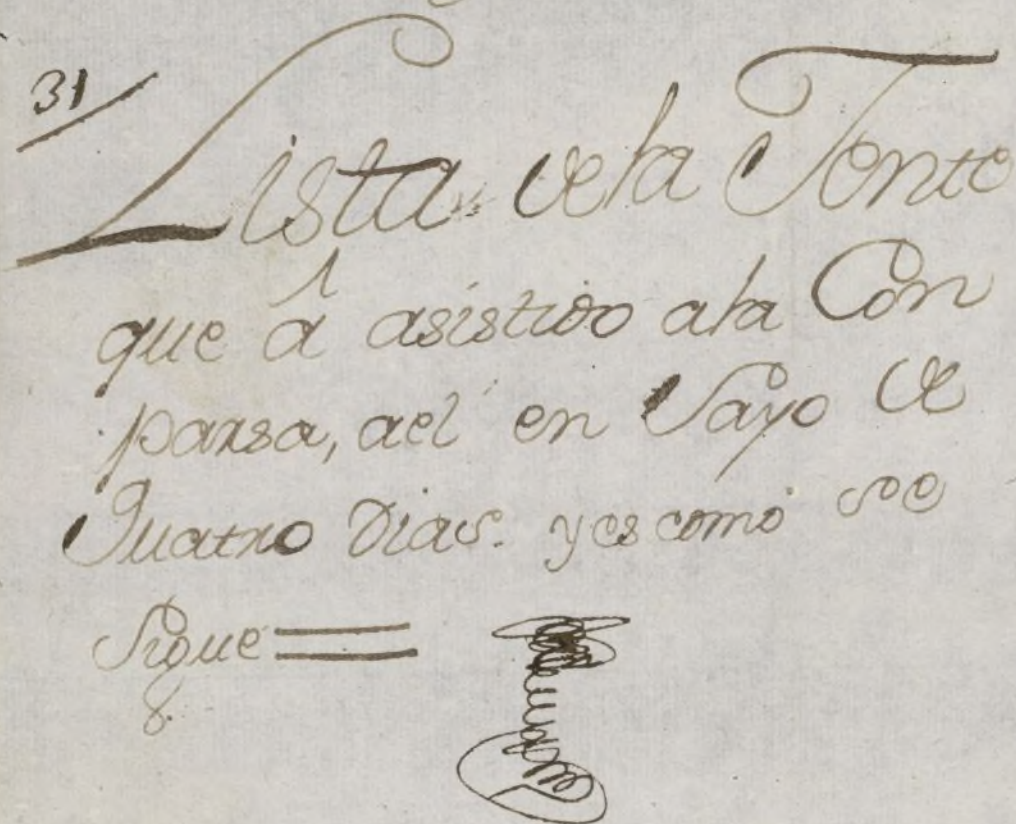 31
Lista de la Jente
que â asistido a la Con
parsa, ael en Sayo de
Quatro Dias. y es como se
Sigue =